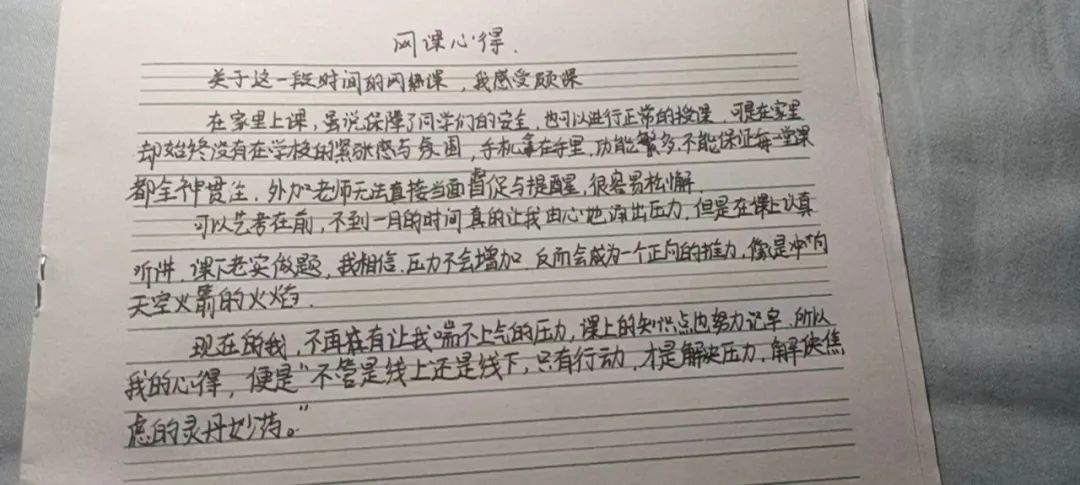 网课心得.
关于这一段时间的网络课，我感受颇深
在家里上课，虽说保障了同学们的安全，也可以进行正常的授课，可是在家里
却始终没有在学校的紧张感与氛围，手机拿在手里，功能繁多，不能保证每一堂课
都全神贯注，外加老师无法直接当面督促与提醒，很容易松懈.
可以艺考在前，不到一月的时间真的让我由心地流出压力，但是在课上认真
听讲，课下老实做题，我相信，压力不会增加，反而会成为一个正向的推力，像是冲向
天空火箭的火焰.
现在的我，不再有让我喘不上气的压力，课上的知识点也努力记牢，所以
我的心得，便是“不管是线上还是线下，只有行动，才是解决压力，解决焦
虑的灵丹妙药。”